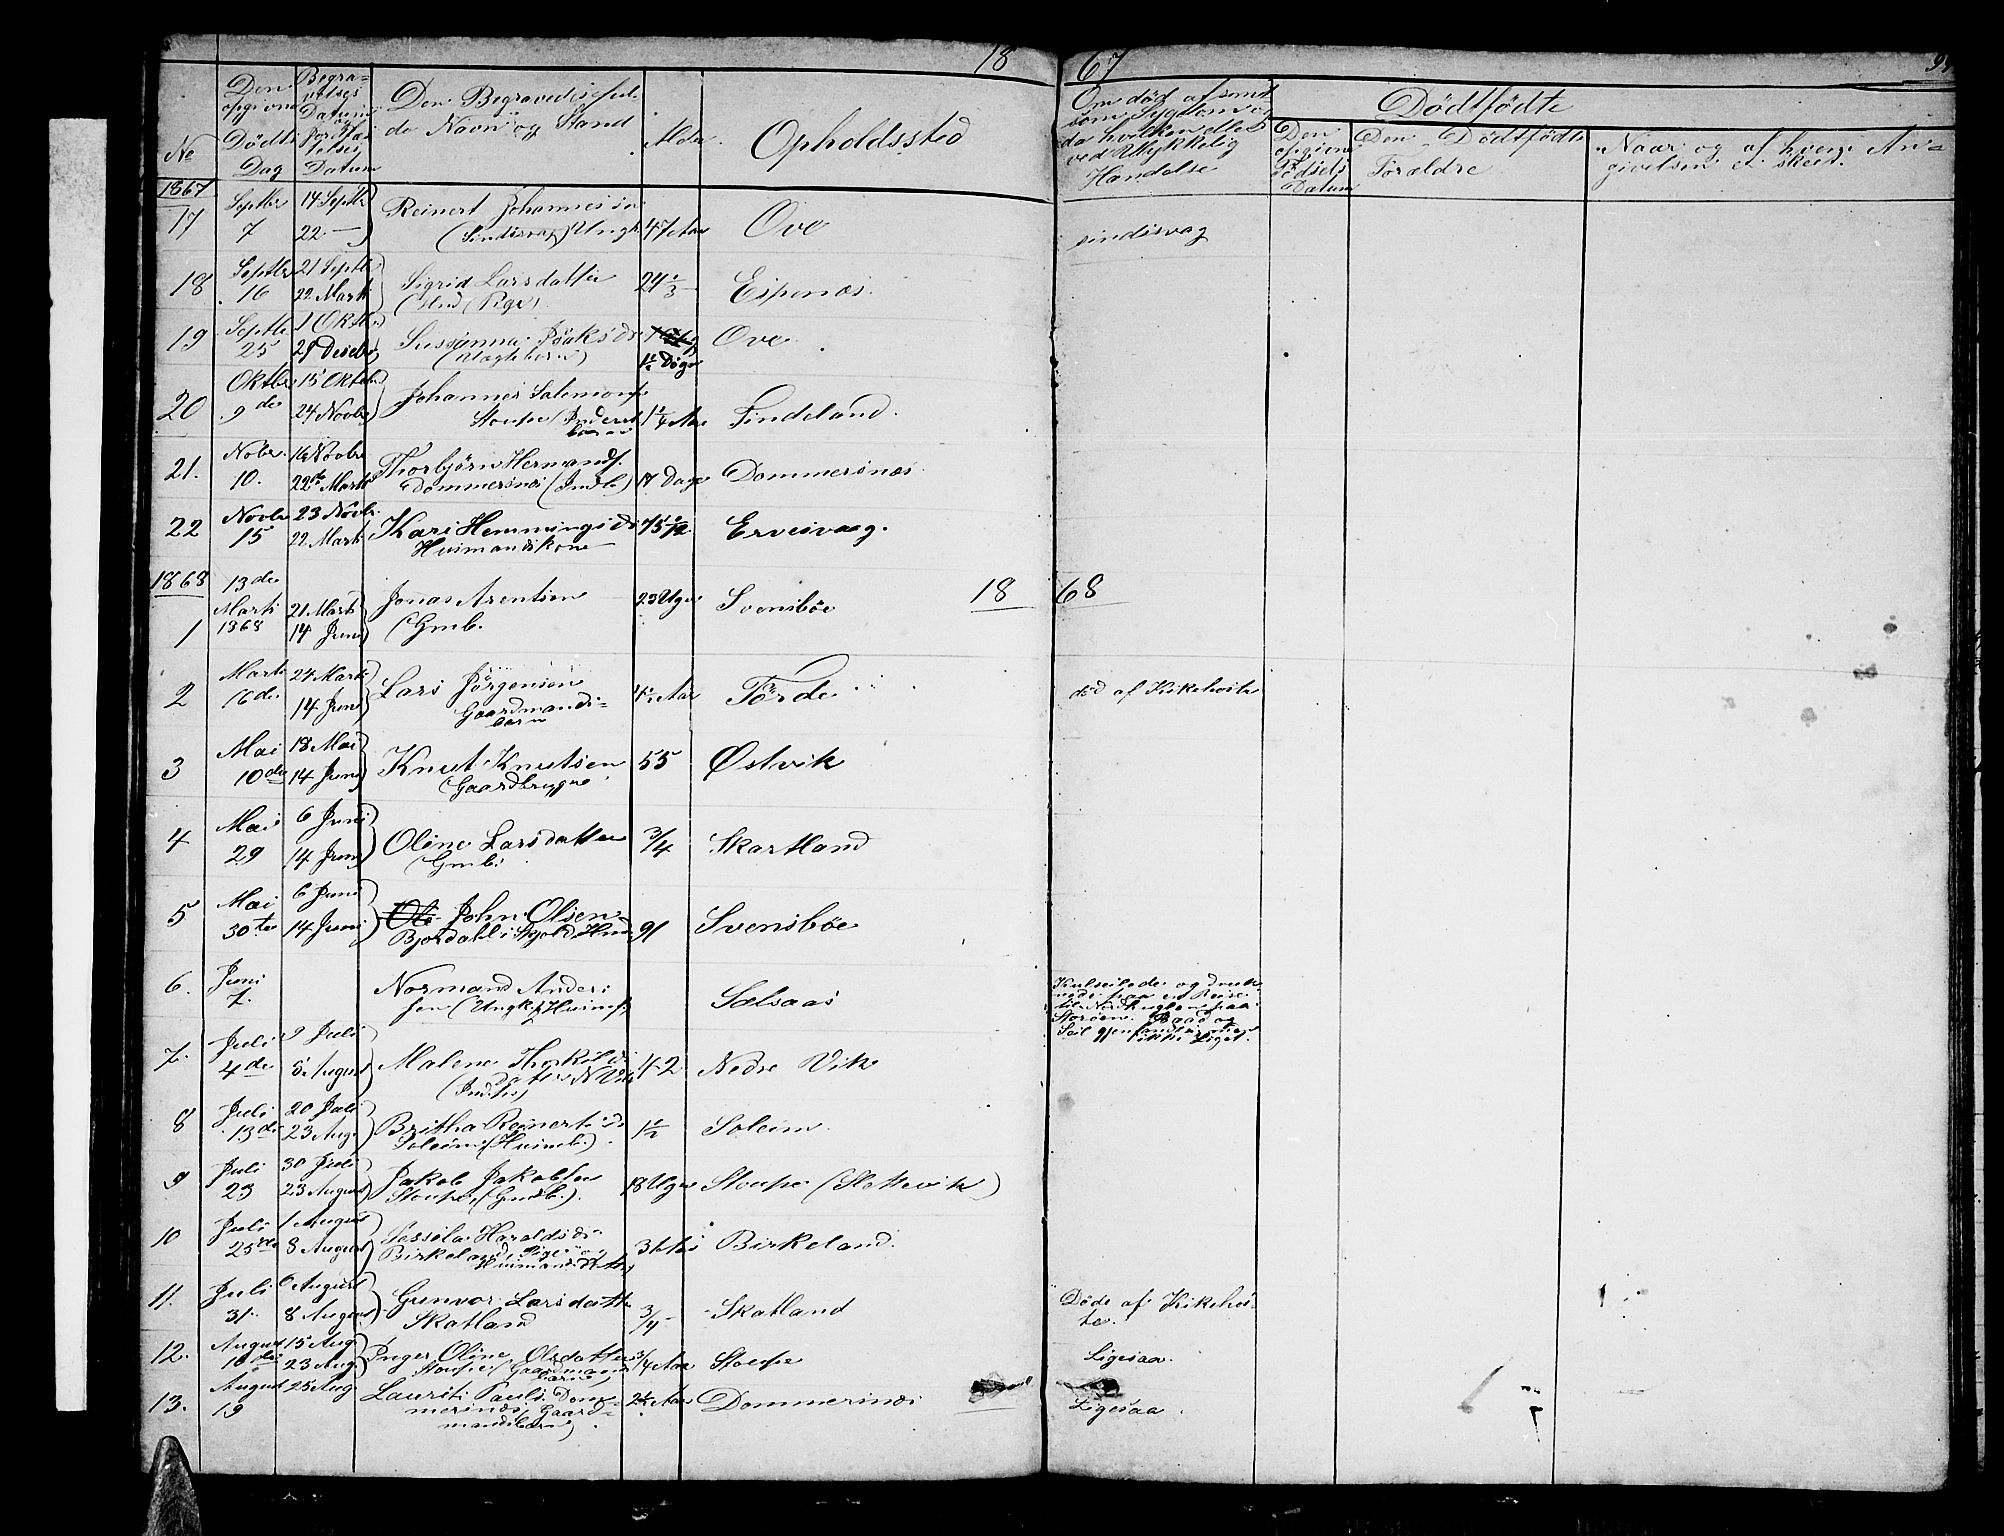 18 67
No
Den opgivne Döds Dag
Begravelses Datum og Jordfæstelses Datum
Den Begravedes fulde Navn og Stand
Alder
Opholdssted
Om död af smitsom Sygdom og da hvilken eller ved Ulykkelig Hændelse
Dödtfödte
Den opgivne Födsels Datum
Den Dödtfödtes Forældre
Naar og af hvem Angivelsen er skeed.
1867
17 Septbr 7 14 Septbr 22 — Reinert Johannessen (Sindssvag) Ungk 47 Aar Ove sindssvag
18 Septbr 16 21 Septbr 22 Marts Sigrid Larsdatter (Pige) 24 1/3 Espenæs.
19 Septbr 25 1 Oktbr 29 Desebr Susanna Isaksdr 1/2 Dage Ove
20 Oktbr 9de 15 Oktober 24 Novbr Johannes Salemons Stoupe (Inderstbarn 1 1/4 Aar Findeland.
21. Nobr. 10. 16 Novbr 22de Marts Thorbjörn Hermands. Dommersnes (Indb) 14 Dage Dommersnæs
22 Novbr 15 23 Novbr. 22 Marts Kari Hemmingsdr Huusmandskone 75 Ervesvaag.
1868 18 68
1 13de Marts 1868 21 Marts 14 Juni Jonas Arentsen (Gmb. 23 Uger Svensböe
2 Marts 16de 24 Marts 14 Juni Lars Jörgensen Gaardmandsbarn 4 1/2 Aar Förde död af Kikehoste
3 Mai 10de 18 Mai 14 Juni Knut Knutsen (Gaardbruger 55 Østvik
4 Mai 29 6 Juni 14 Juni Oline Larsdatter (Gmb. 3/4 Skartland
5 Mai 30te 6 Juni 14 Juni Ole John Olsen Bjordahl i Skjold 91 Svensböe
6. Juni 7. Normand Andersen (Ungk Huusm Sælsaas Kulseilede og druknede paa en Reise til Nordhuglen fra Storöen. Baad og Seil gjenfandtes men ikke Liget.
7. Juli 4de 9 Juli 8 August Malene Thorkildsdatter N Vik (Indtes) 42 Nedre Vik
8 Juli 13de 20 Juli 23 Aug. Britha Reinertsd Soleim (Huusmb.) 1 1/2 Soleim.
9 Juli 23 30 Juli 23 August Jakob Jakobsen Stoupe, (Gmdb.) 18 Uger Stoupe (Slettevik)
10 Juli 25de 1 August 8 August Sessela Haraldsdr Birkeland Pige og Huusmandsdatter 31 Aar Birkeland.
11. Juli 31. 6 August 8 August Gunvor Larsdatter Skatland 3/4 Skatland Döde af Kikehoste.
12. August 10de 15 Aug 23 Aug. Inger Oline Olsdatter Stoupe (Gaardmandsbarn 3/4 Aar Stoupe Ligesaa.
13. August 19 25 Aug. Laurits Pauls. Dommersnes Gaardmandsbarn) 2 1/2 Aar Dommersnæs Ligesaa.